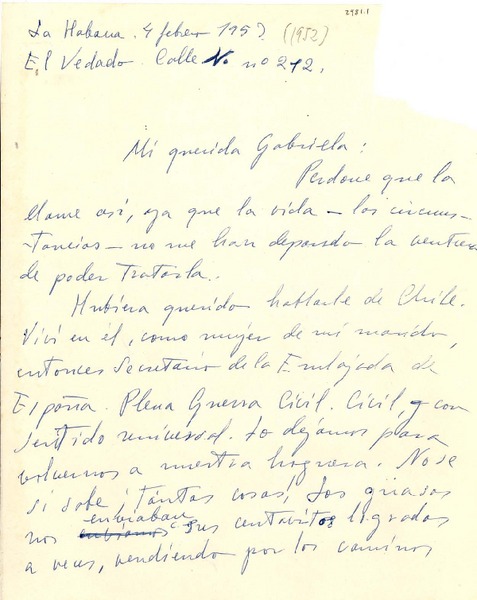 2981.1
La Habana. 4 febrero 195? (1952)
El Vedado. Calle N nº 212,
Mi querida Gabriela:
Perdone que la
llame así, ya que la vida - las circuns-
-tancias - no me han deparado la ventura
de poder tratarla.
Hubiera querido hablarle de Chile.
Viví en él, como mujer de mi marido,
entonces Secretario de la Embajada de
España. Plena Guerra Civil. Civil, y con
sentido universal. Lo dejamos para
volvernos a nuestra hoguera. No sé
si sabe ¡tántas cosas! Los guasos
nos enviaban sus centavitos logrados
a veces, vendiendo por los caminos